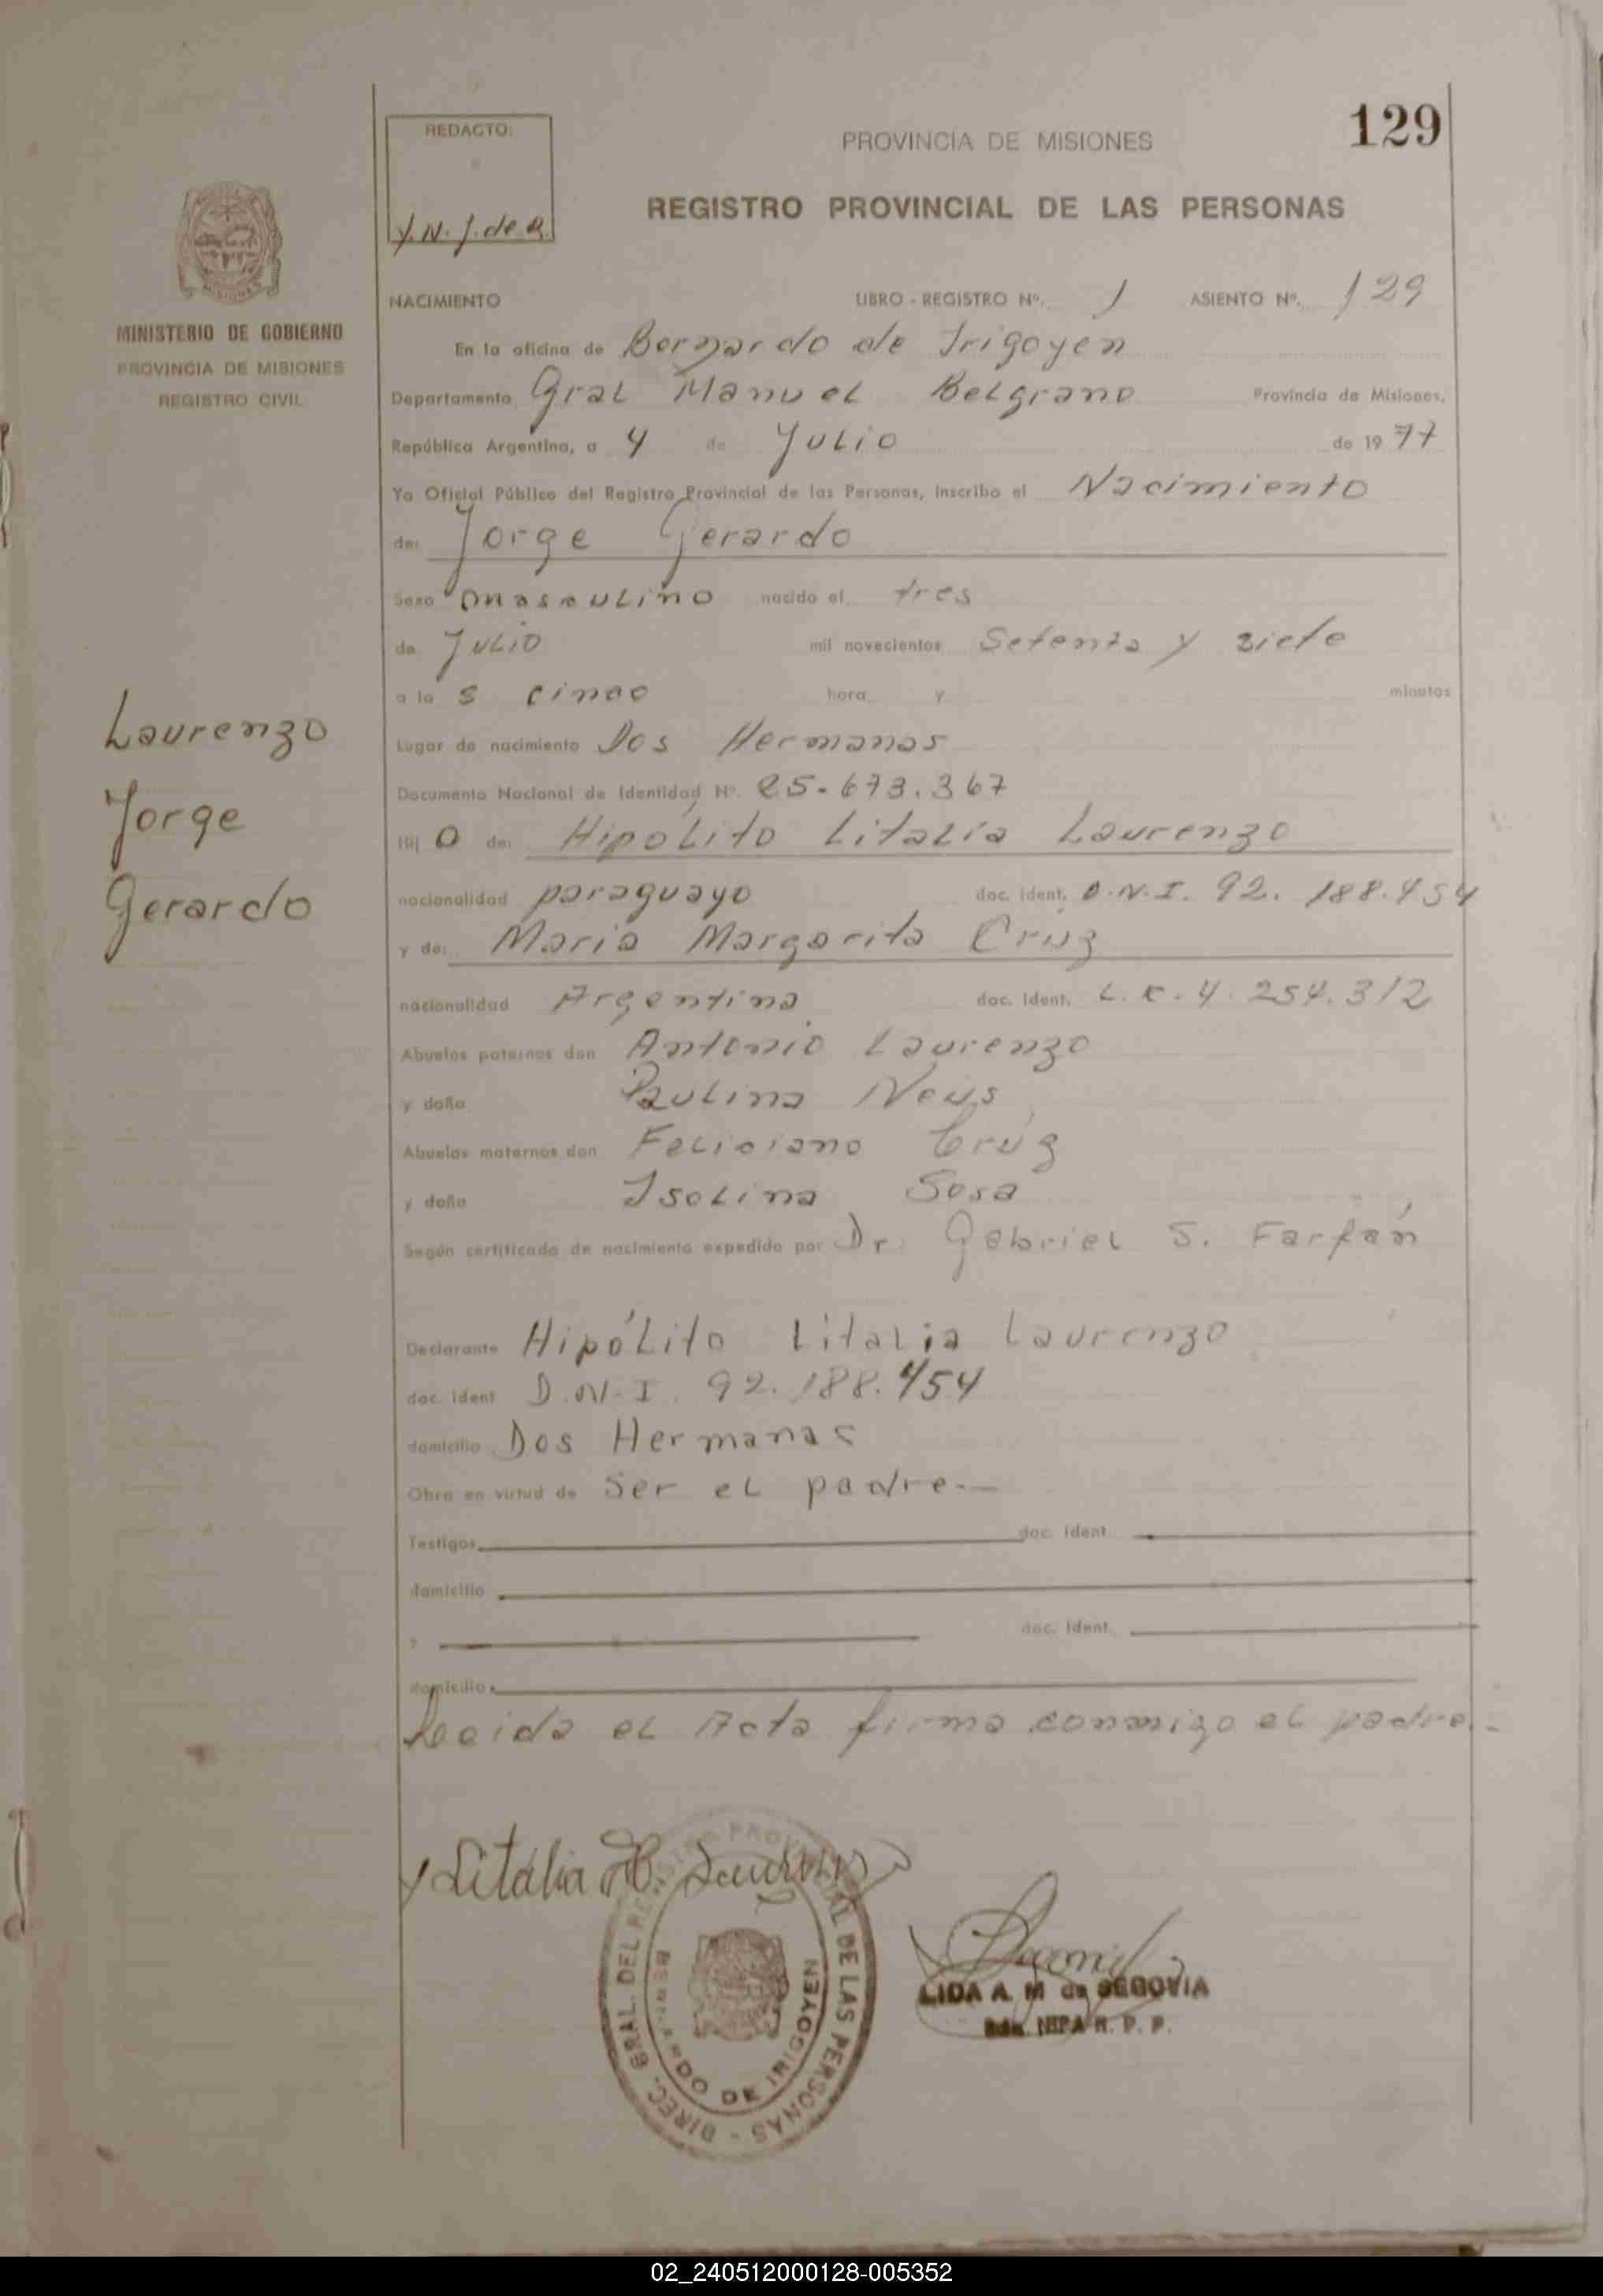 129
REDACTO:
Y.N.J. de R.
PROVINCIA DE MISIONES
REGISTRO PROVINCIAL DE LAS PERSONAS
MISIONES
MINISTERIO DE GOBIERNO
PROVINCIA DE MISIONES
REGISTRO CIVIL
NACIMIENTO LIBRO - REGISTRO Nº. 1 ASIENTO Nº. 129
En la oficina de Bernardo de Irigoyen
Departamento Gral Manuel Belgrano Provincia de Misiones,
República Argentina, a 4 de Julio de 1977
Yo Oficial Público del Registro Provincial de las Personas, inscribo el Nacimiento
de: Jorge Gerardo
Sexo masculino nacido el tres
de Julio mil novecientos Setenta y siete
a la s cinco hora y minutos
Laurenzo
Jorge
Gerardo
Lugar de nacimiento Dos Hermanas
Documento Nacional de Identidad Nº. 25.673.367
Hij o de: Hipólito Litalia Laurenzo
nacionalidad paraguayo doc. ident. D.N.I. 92.188.454
y de: Maria Margarita Cruz
nacionalidad Argentina doc. ident. L.C. 4.254.312
Abuelos paternos don Antonio Laurenzo
y doña Paulina Neus
Abuelos maternos don Feliciano Cruz
y doña Isolina Sosa
Según certificado de nacimiento expedido por Dr. Gabriel S. Farfán
Declarante Hipólito Litalia Laurenzo
doc. ident D.N.I. 92.188.454
domicilio Dos Hermanas
Obra en virtud de Ser el padre.—
Testigos doc. ident.
domicilio
y doc. ident.
domicilio
Leida el Acta firma conmigo el padre.-
Litalia H. Laurenzo
DIREC. GRAL. DEL REGISTRO PROVINCIAL DE LAS PERSONAS -
BERNARDO DE IRIGOYEN
LIDA A. M de SEGOVIA
R. P. P.
02_240512000128-005352